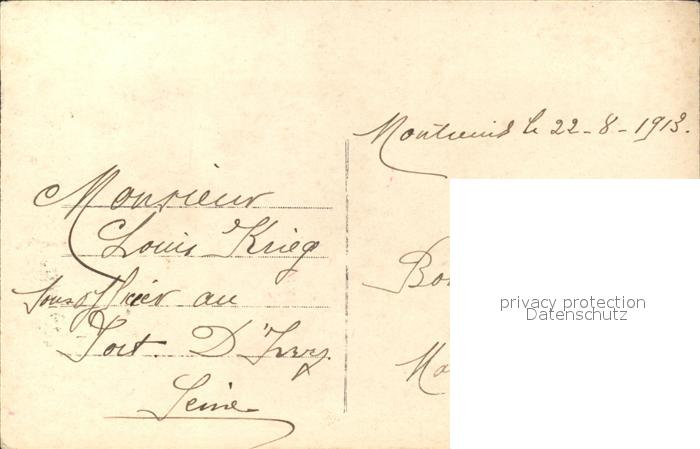 Montreuil le 22-8-1913.
Monsieur
Louis Krieg
Sous officier au
Fort D'Ivry.
Seine
privacy protection
Datenschutz